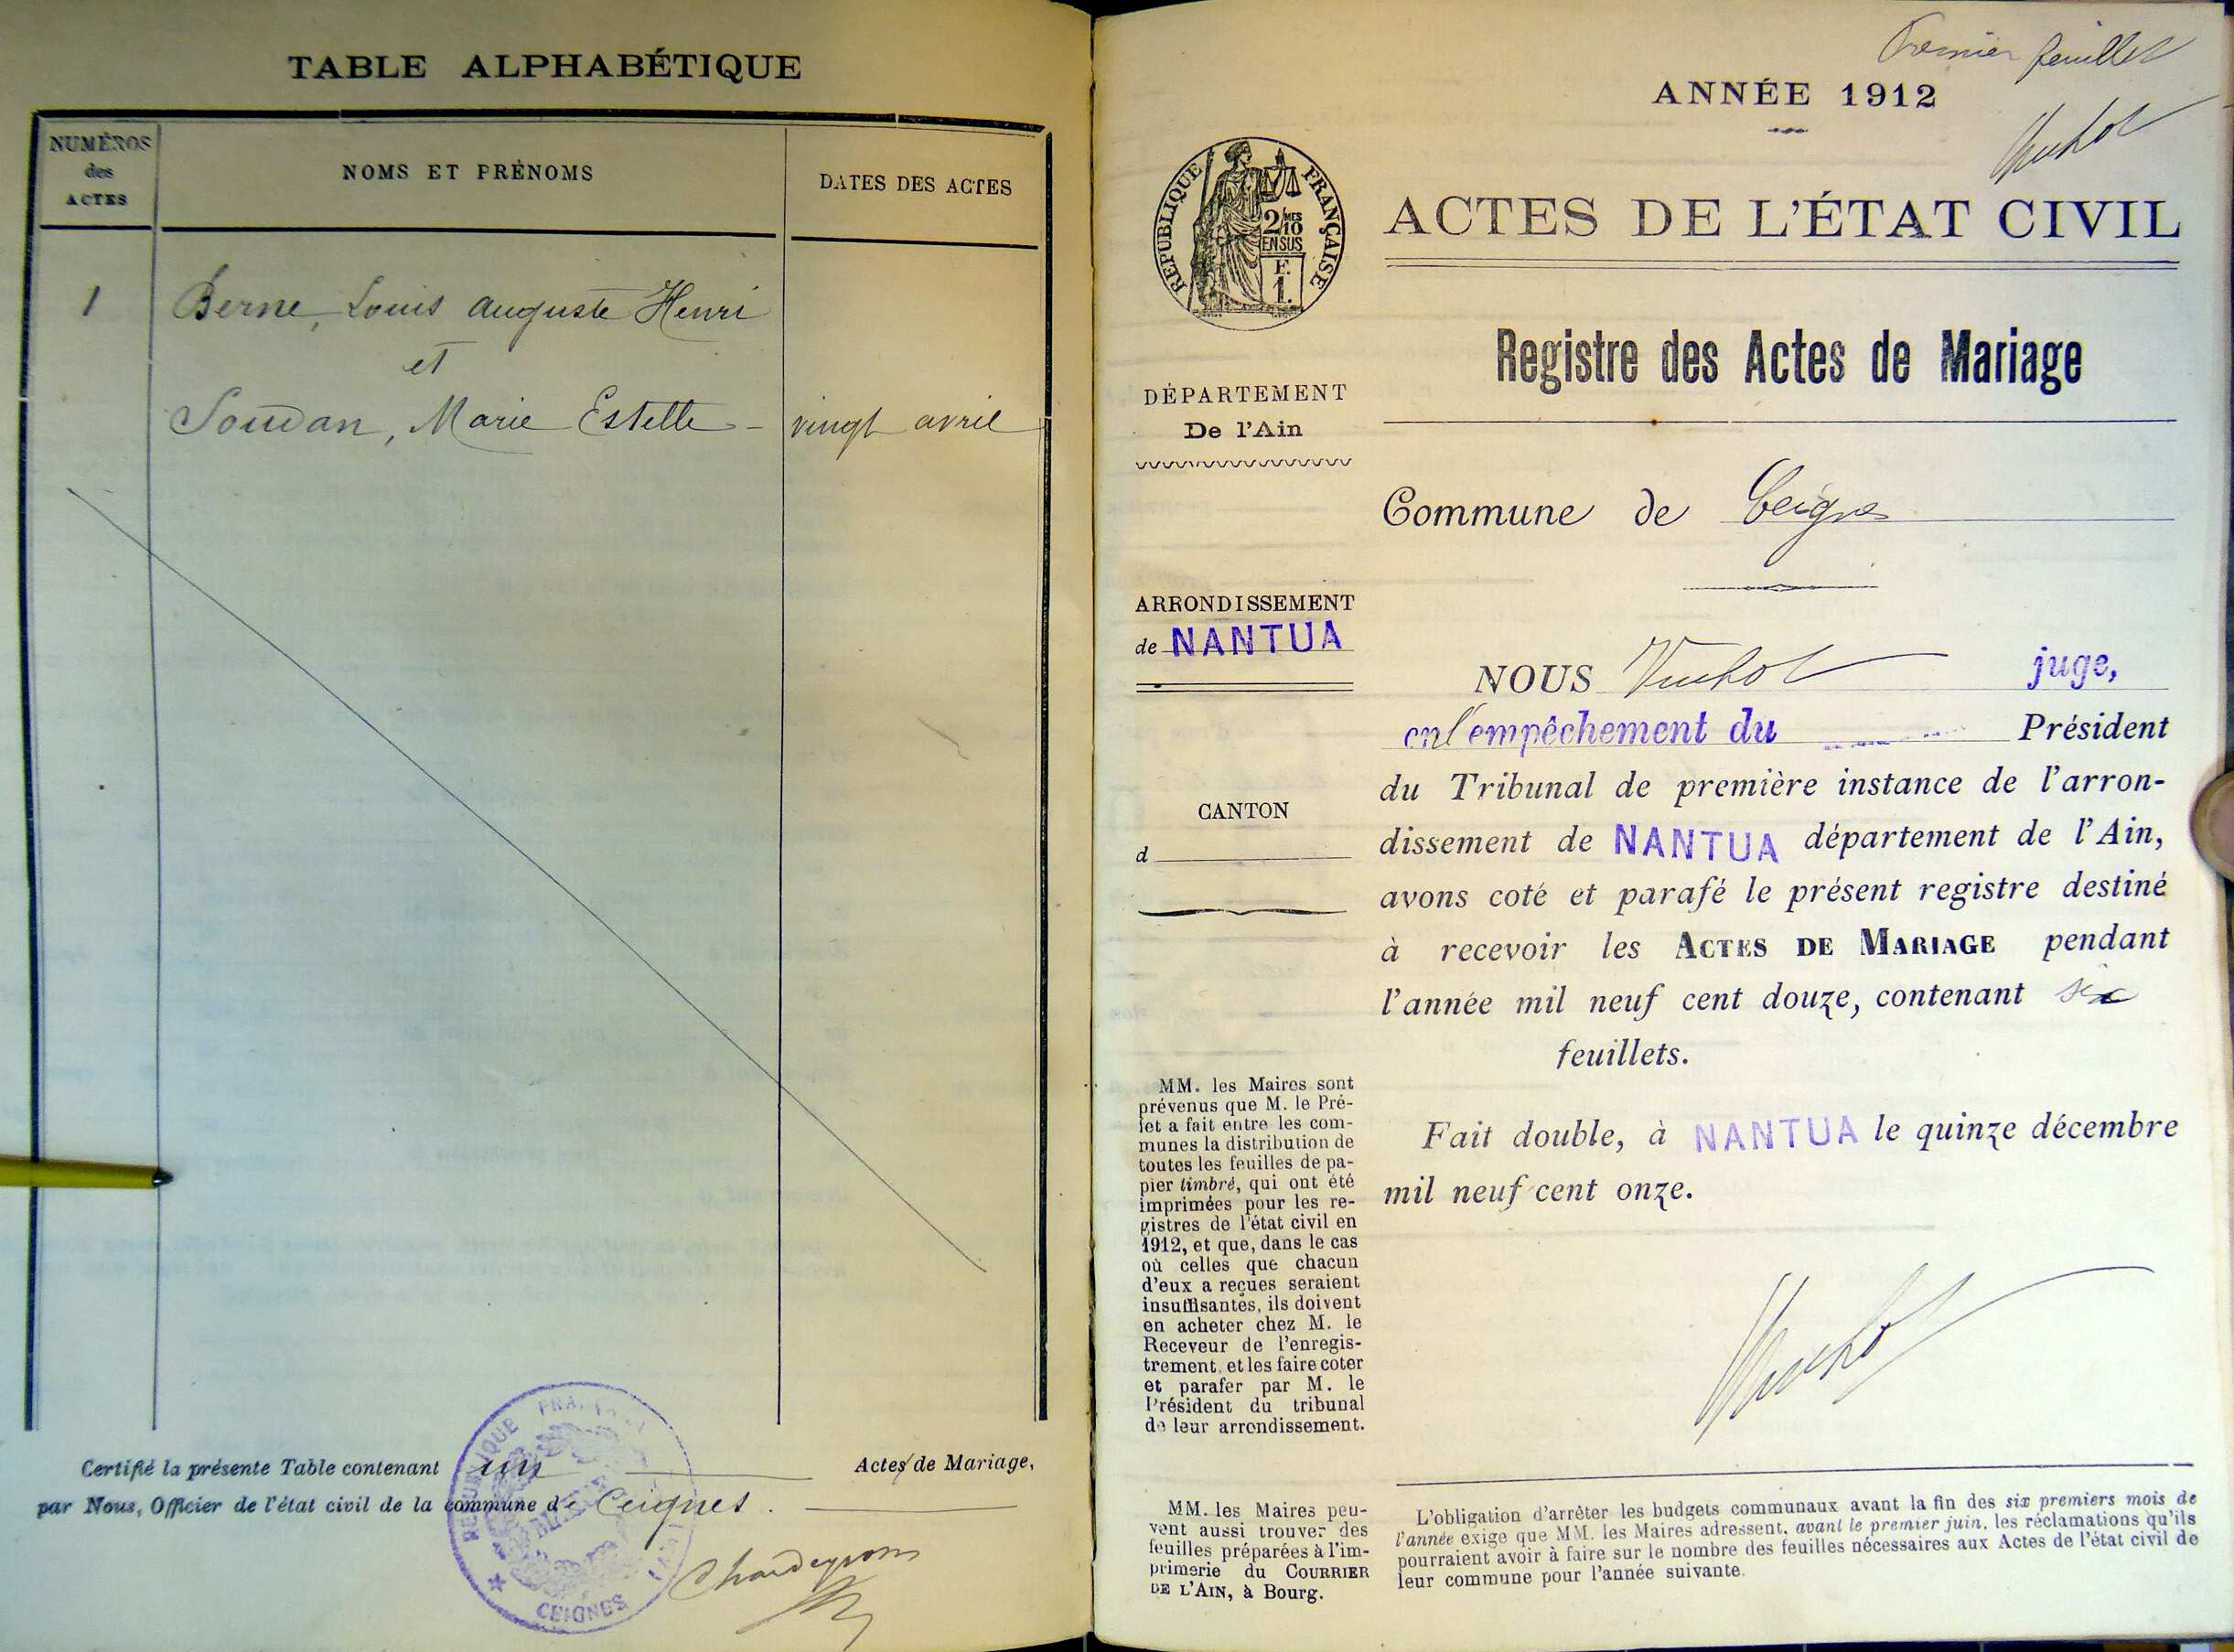 TABLE ALPHABÉTIQUE
NUMÉROS
des
ACTES
NOMS ET PRÉNOMS
DATES DES ACTES
1
Berne, Louis Auguste Henri
et
Soudan, Marie Estelle - vingt avril
Certifié la présente Table contenant un Actes de Mariage,
par Nous, Officier de l'état civil de la commune de Ceignes.
RÉPUBLIQUE FRANÇAISE
CEIGNES
Premier feuillet
ANNÉE 1912
RÉPUBLIQUE FRANÇAISE
2/10MES
EN SUS
F.
1.
ACTES DE L'ÉTAT CIVIL
Registre des Actes de Mariage
DÉPARTEMENT
De l'Ain
Commune de Ceignes
ARRONDISSEMENT
de NANTUA
CANTON
d
NOUS juge,
en l'empêchement du Président
du Tribunal de première instance de l'arron-
dissement de NANTUA département de l'Ain,
avons coté et parafé le présent registre destiné
à recevoir les ACTES DE MARIAGE pendant
l'année mil neuf cent douze, contenant six
feuillets.
Fait double, à NANTUA le quinze décembre
mil neuf cent onze.
MM. les Maires sont
prévenus que M. le Pré-
fet a fait entre les com-
munes la distribution de
toutes les feuilles de pa-
pier timbré, qui ont été
imprimées pour les re-
gistres de l'état civil en
1912, et que, dans le cas
où celles que chacun
d'eux a reçues seraient
insuffisantes, ils doivent
en acheter chez M. le
Receveur de l'enregis-
trement, et les faire coter
et parafer par M. le
Président du tribunal
de leur arrondissement.
MM. les Maires peu-
vent aussi trouver des
feuilles préparées à l'im-
primerie du COURRIER
DE L'AIN, à Bourg.
L'obligation d'arrêter les budgets communaux avant la fin des six premiers mois de
l'année exige que MM. les Maires adressent, avant le premier juin, les réclamations qu'ils
pourraient avoir à faire sur le nombre des feuilles nécessaires aux Actes de l'état civil de
leur commune pour l'année suivante.